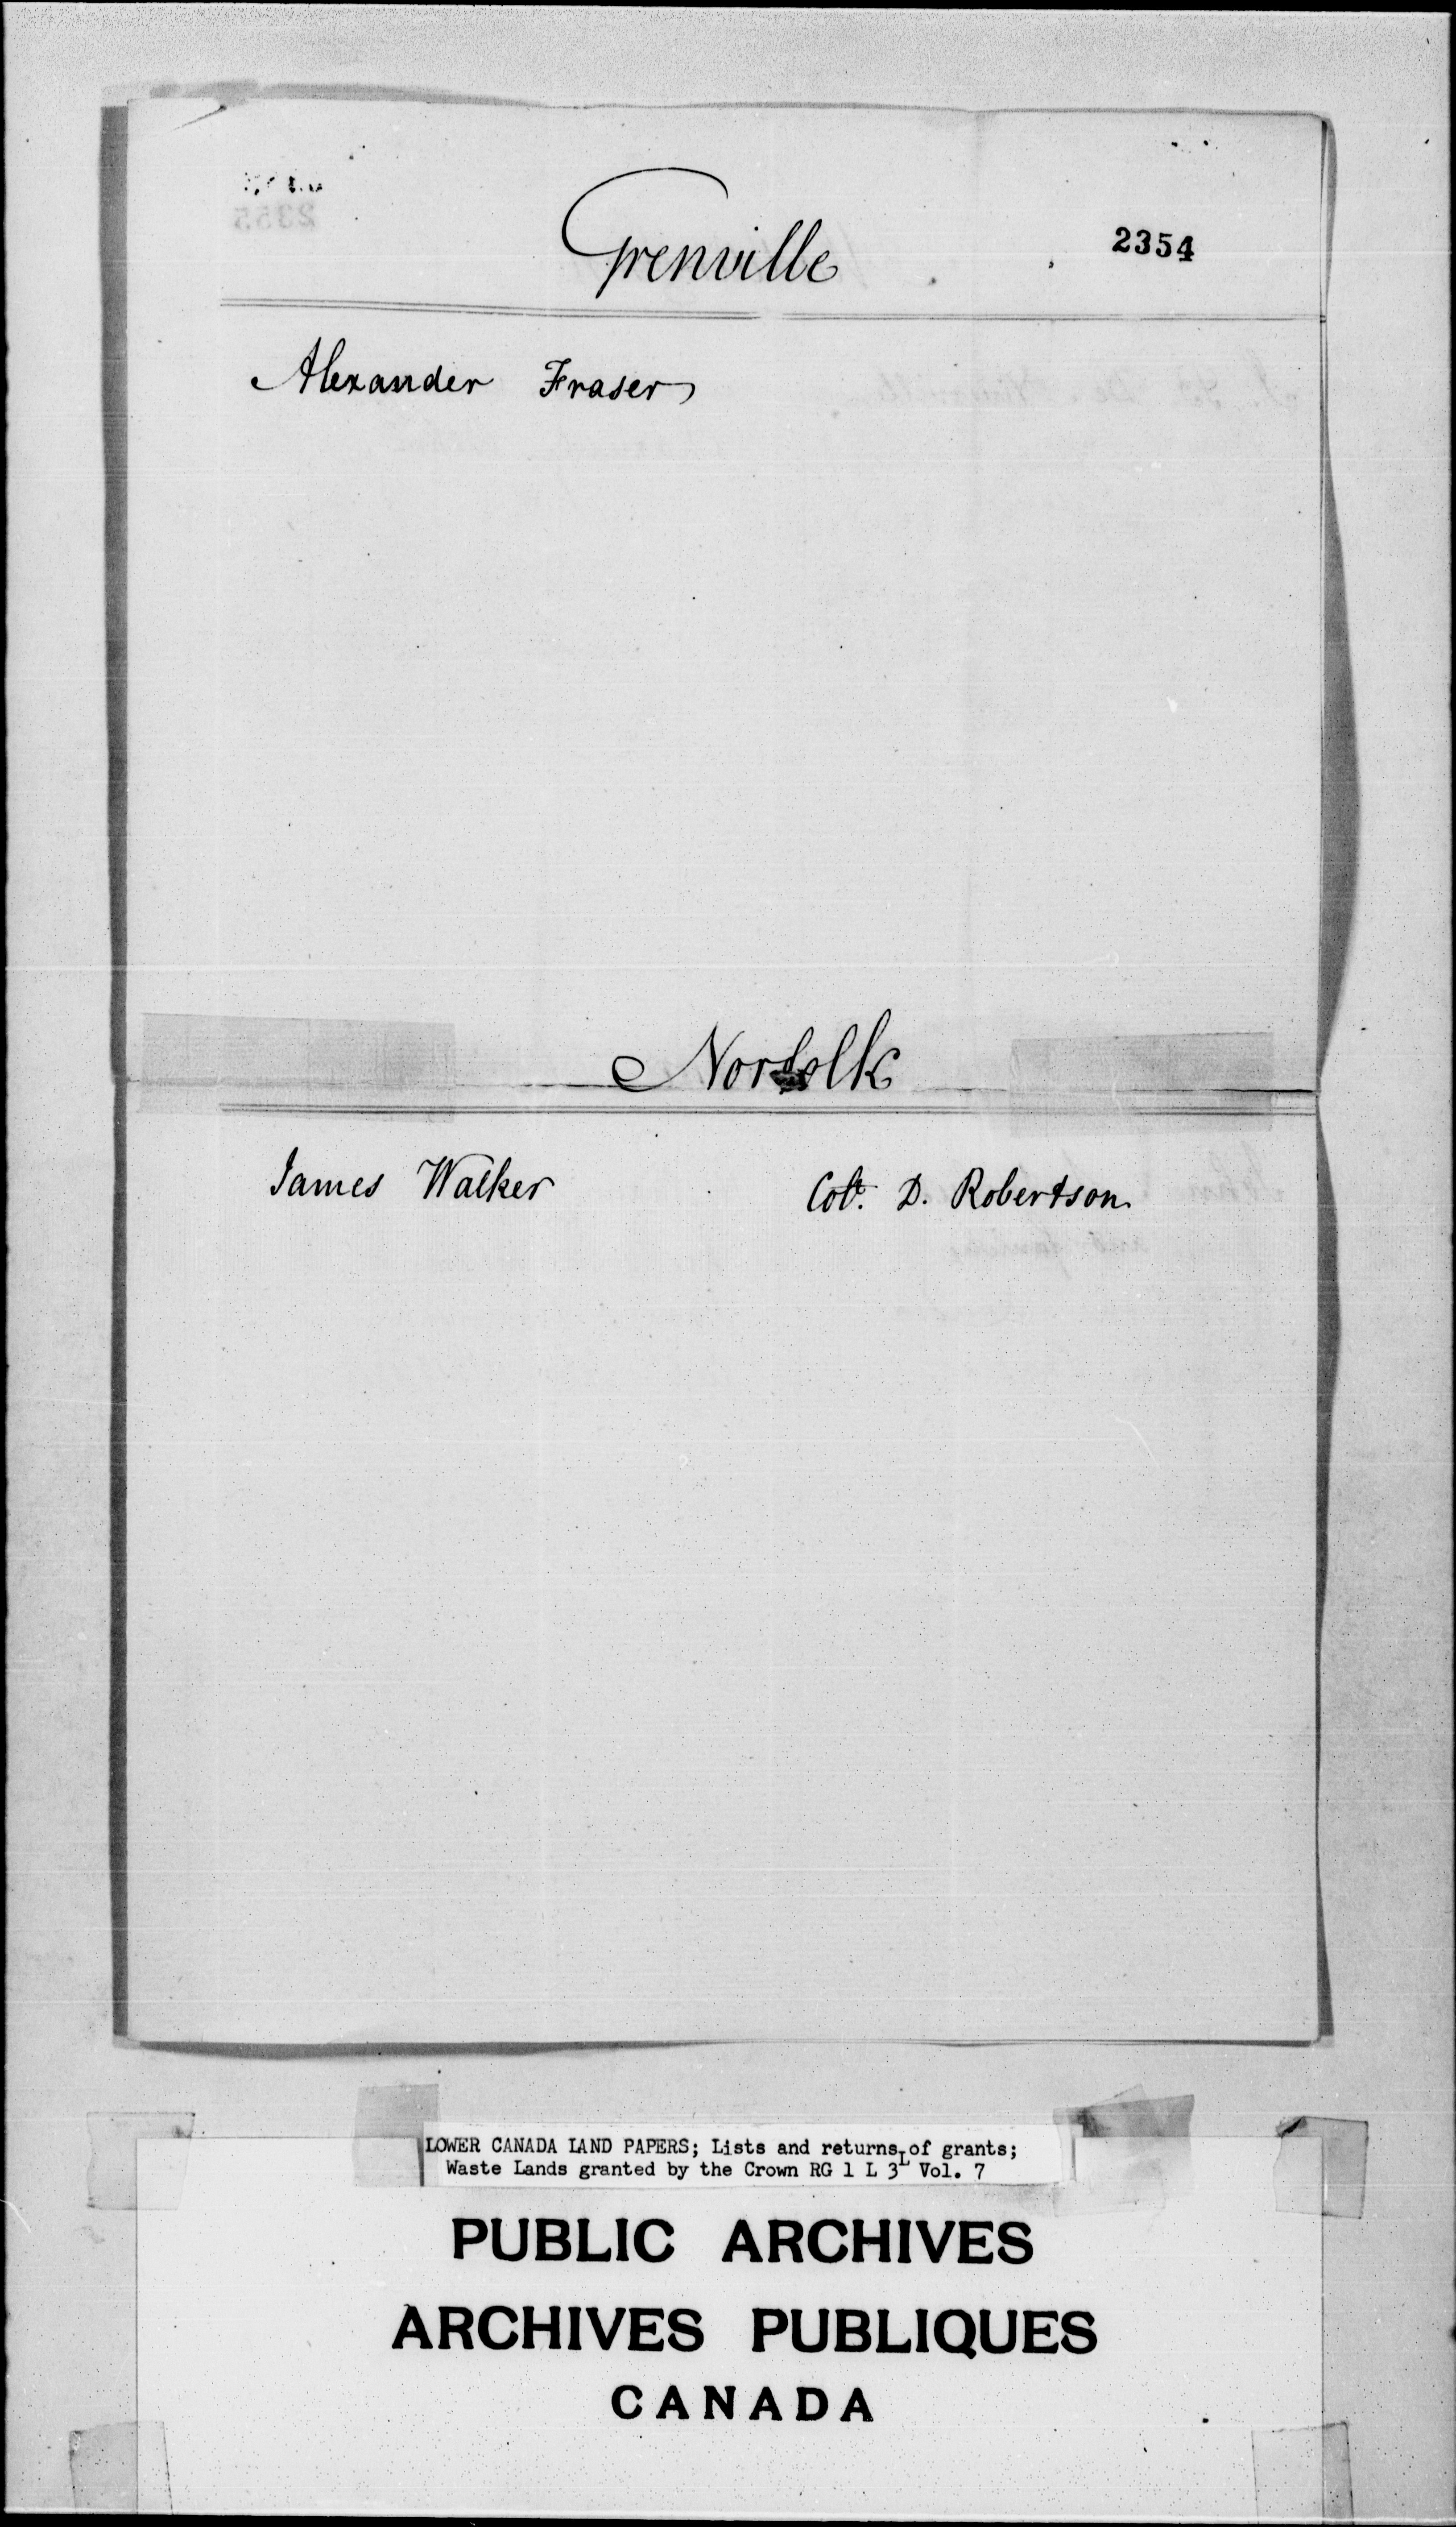 2354
Grenville
Alexander Fraser
Norfolk
James Walker Col. D. Robertson
LOWER CANADA LAND PAPERS; Lists and returns of grants;
Waste Lands granted by the Crown RG 1 L 3L Vol. 7
PUBLIC ARCHIVES
ARCHIVES PUBLIQUES
CANADA